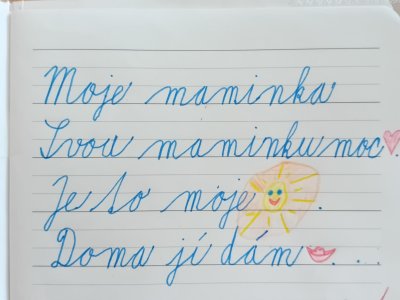 Moje maminka
Svou maminku moc.
Je to moje .
Doma jí dám ...